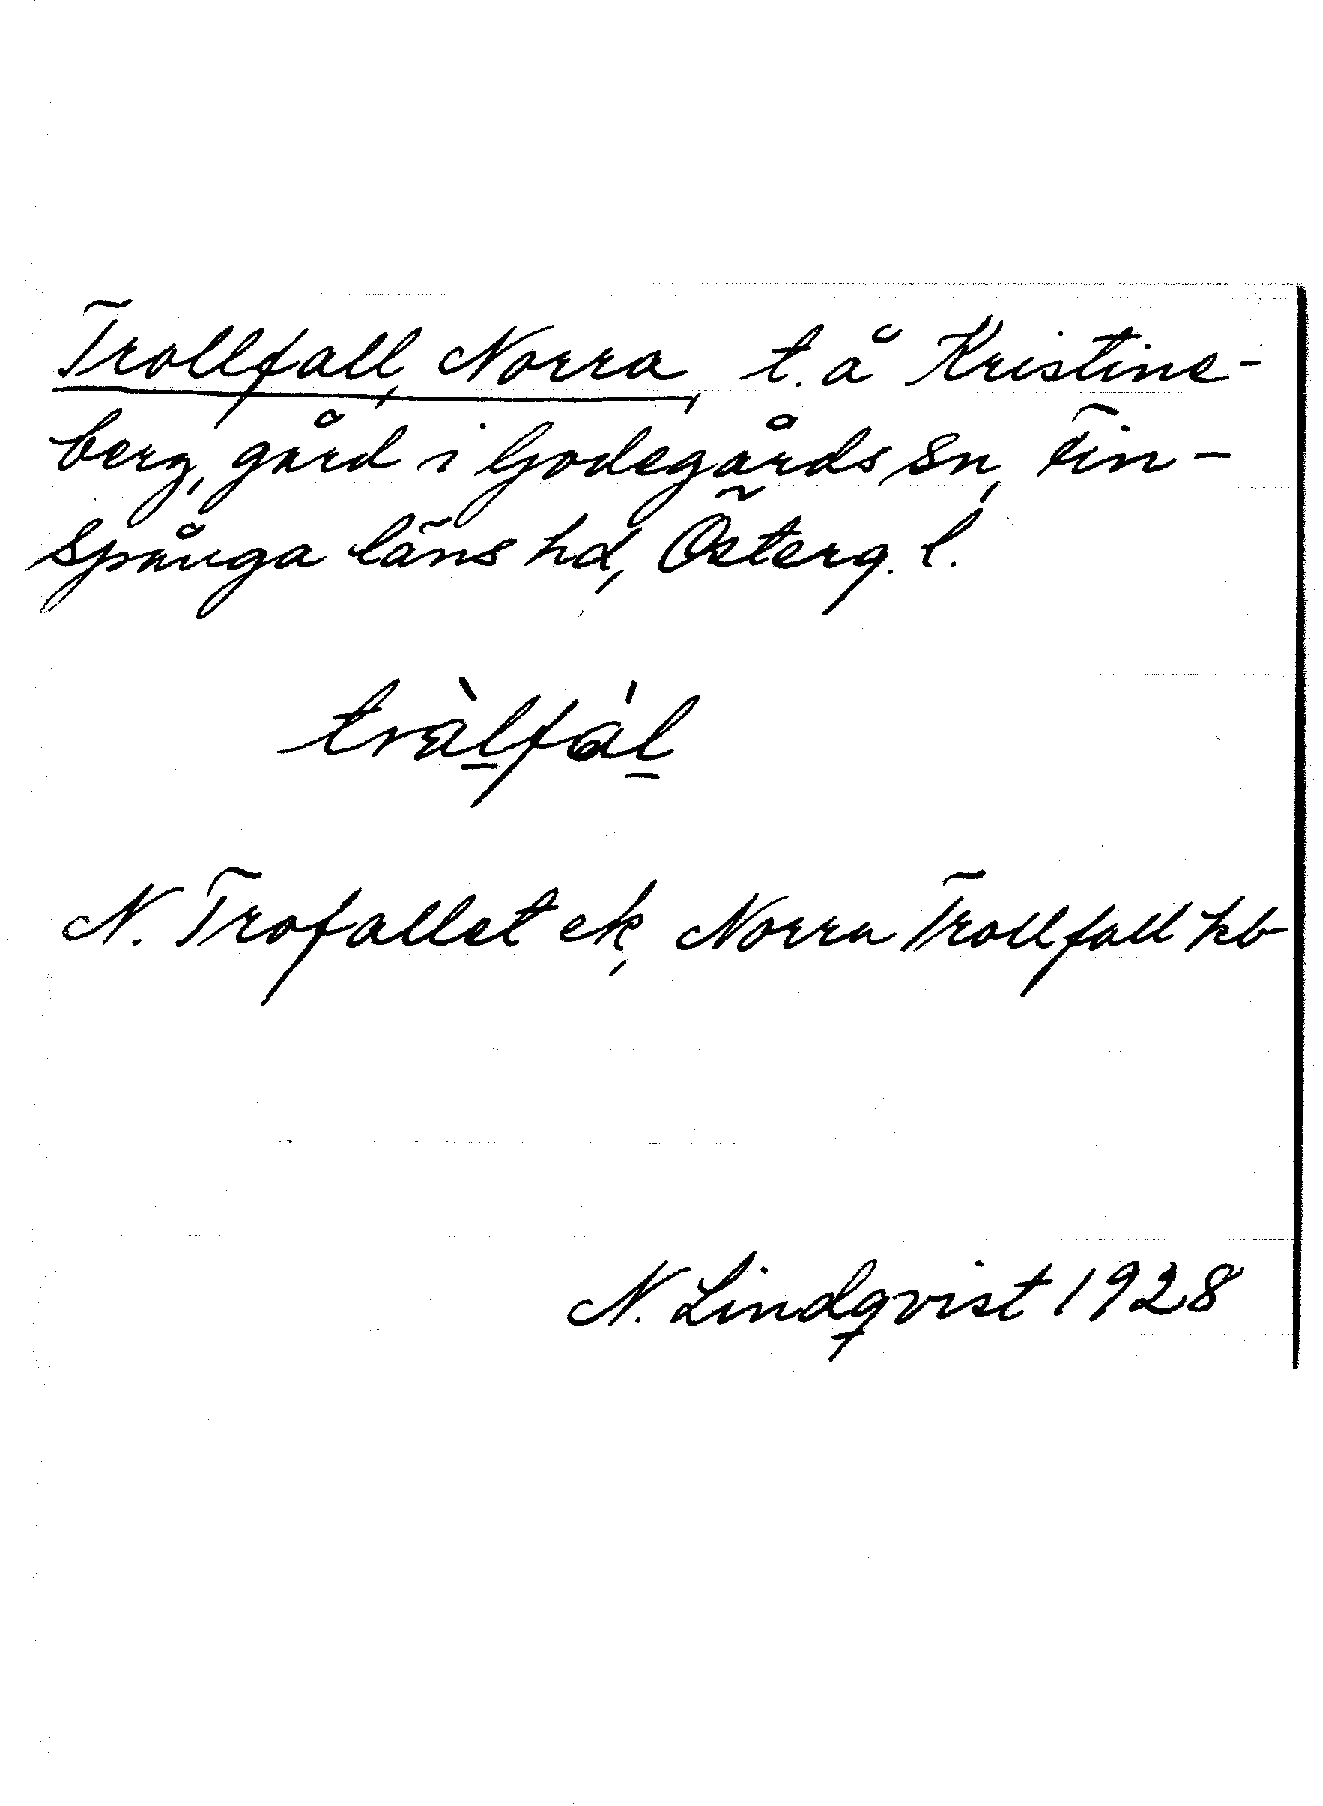 Trollfall, Norra, t. å Kristine-
berg, gård i Godegårds sn, Fin-
spånga läns hd, Österg. l.
tràl̠fál̠
N. Trofallet ek, Norra Trollfall hb
N. Lindqvist 1928